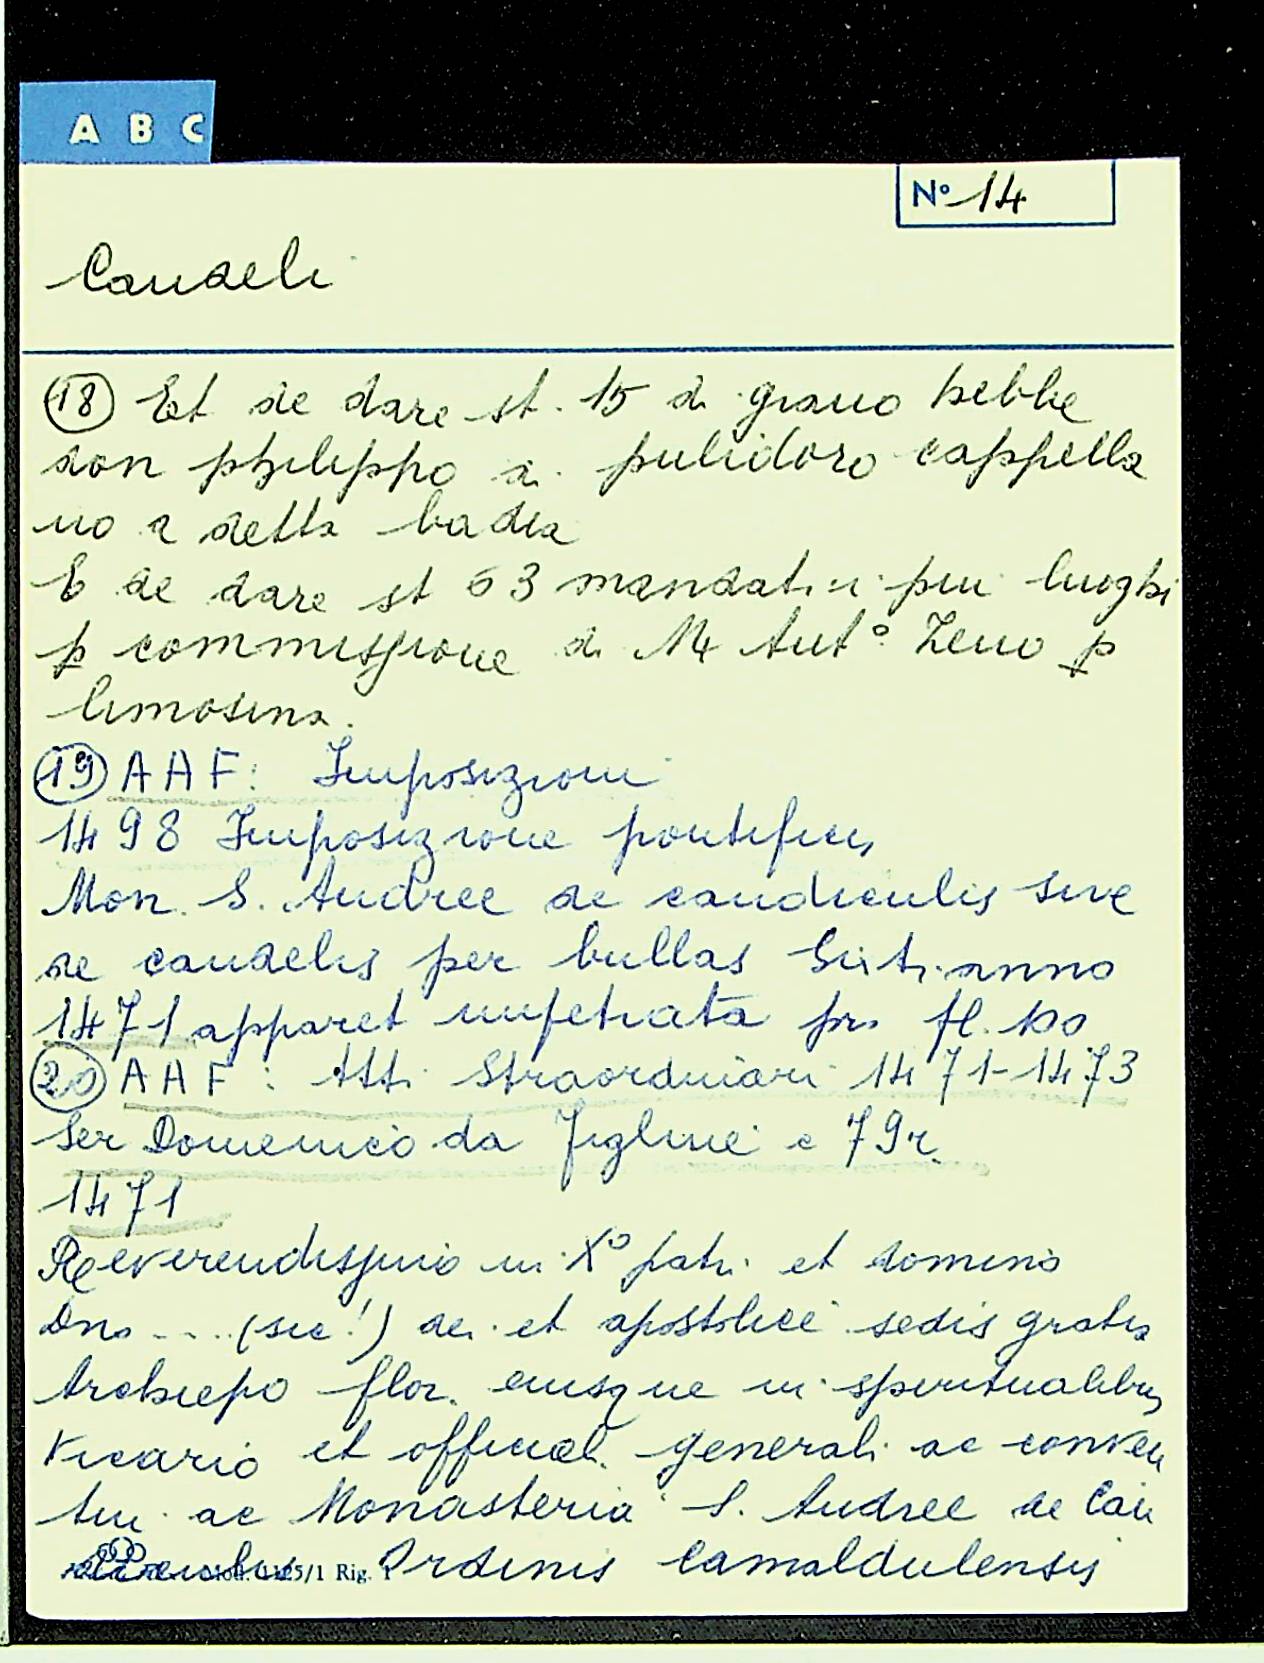 A B C
Nº 14
Candeli
(18) Et de dare st. 15 di grano hebbe
don philippo di pulidoro cappella
no a detta badia
E de dare st 63 mandati i piu luoghi
p commissione di Mº Antº Zeno p
limosina.
(19) AAF: Imposizioni
1498 Imposizione pontificis
Mon. S. Andree de candiculis sive
de candelis per bullas Sixti anno
1471 apparet impetrata pro fl. 100
(20) AAF: Atti Straordinari 1471-1473
Ser Domenico da Figline c 79r.
1471
Reverendissimo in Xº patri et domino
Dno .... (sic!) dei et apostolice sedis gratia
Archiepo flor. eiusque in spiritualibus
Vicario et official. generali ac conven
tui ac Monasteria S. Andree de Can
diculis Ordinis Camaldulensis
/1 Rig.